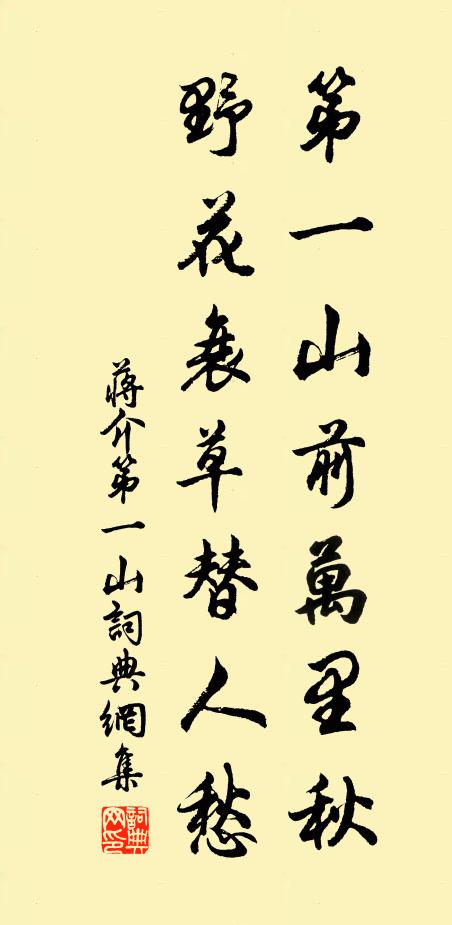 第一山前萬里秋
野花衰草替人愁
蔣介第一山詞典網集
詞典
网印